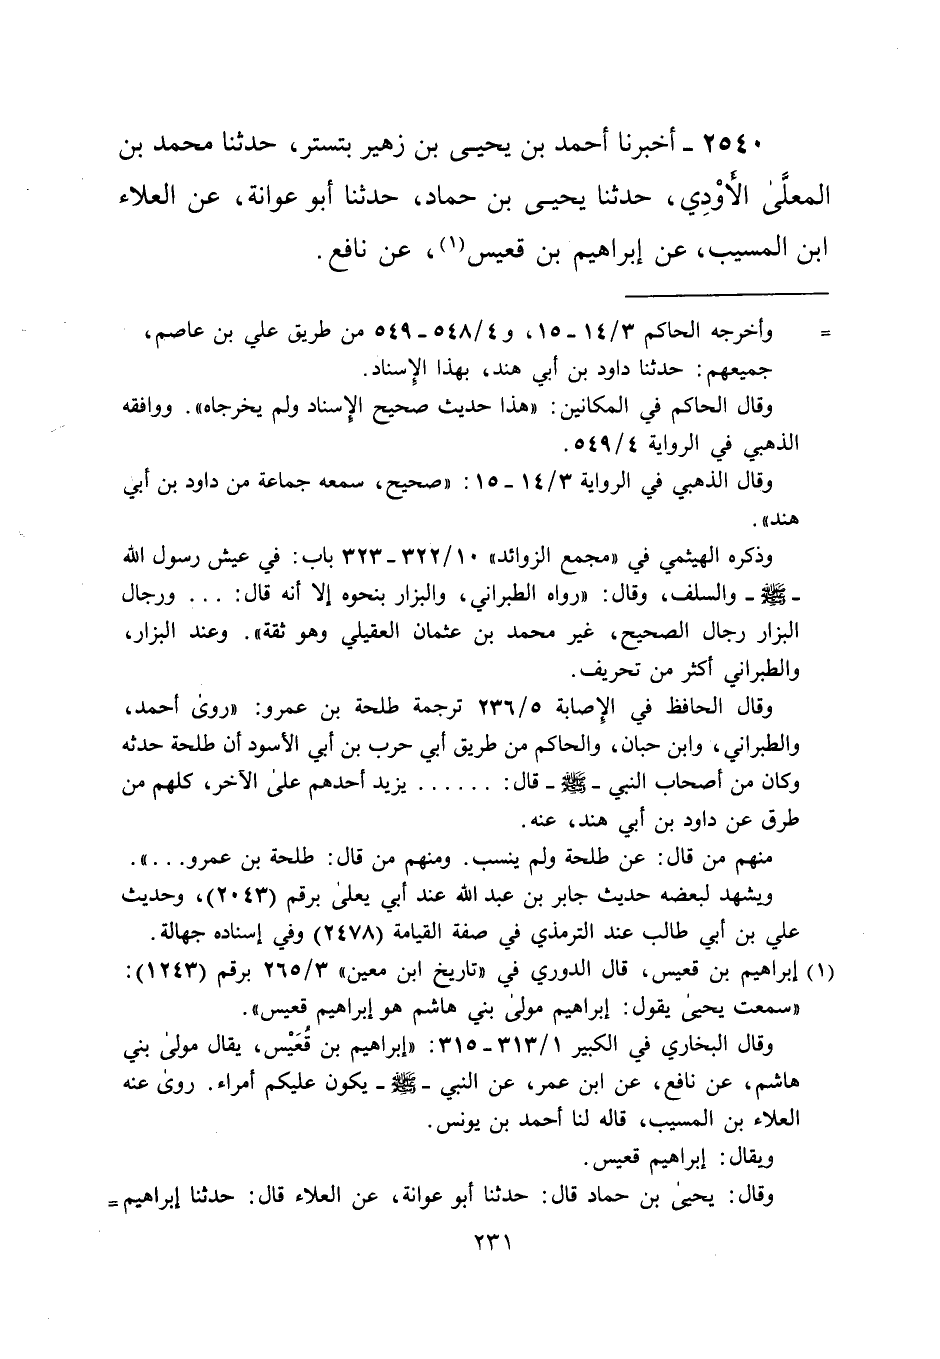 ٢٥٤٠ ـ أخبرنا أحمد بن يحيـى بن زهير بتستر، حدثنا محمد بن
المعلَّىٰ الأَوْدِي، حدثنا يحيـى بن حماد، حدثنا أبو عوانة، عن العلاء
ابن المسيب، عن إبراهيم بن قعيس(١)، عن نافع.
= وأخرجه الحاكم ١٤/٣ ـ ١٥، و٥٤٨/٤ ـ ٥٤٩ من طريق علي بن عاصم،
جميعهم: حدثنا داود بن أبي هند، بهذا الإسناد.
وقال الحاكم في المكانين: «هذا حديث صحيح الإسناد ولم يخرجاه». ووافقه
الذهبي في الرواية ٥٤٩/٤.
وقال الذهبي في الرواية ١٤/٣ ـ ١٥: «صحيح، سمعه جماعة من داود بن أبي
هند».
وذكره الهيثمي في «مجمع الزوائد» ٣٢٢/١٠ ـ ٣٢٣ باب: في عيش رسول الله
ـ ﷺ ـ والسلف، وقال: «رواه الطبراني، والبزار بنحوه إلا أنه قال: ... ورجال
البزار رجال الصحيح، غير محمد بن عثمان العقيلي وهو ثقة». وعند البزار،
والطبراني أكثر من تحريف.
وقال الحافظ في الإصابة ٢٣٦/٥ ترجمة طلحة بن عمرو: «روىٰ أحمد،
والطبراني، وابن حبان، والحاكم من طريق أبي حرب بن أبي الأسود أن طلحة حدثه
وكان من أصحاب النبي ـ ﷺ ـ قال: ...... يزيد أحدهم علىٰ الآخر، كلهم من
طرق عن داود بن أبي هند، عنه.
منهم من قال: عن طلحة ولم ينسب. ومنهم من قال: طلحة بن عمرو...».
ويشهد لبعضه حديث جابر بن عبد الله عند أبي يعلىٰ برقم (٢٠٤٣)، وحديث
علي بن أبي طالب عند الترمذي في صفة القيامة (٢٤٧٨) وفي إسناده جهالة.
(١) إبراهيم بن قعيس، قال الدوري في «تاريخ ابن معين» ٢٦٥/٣ برقم (١٢٤٣):
«سمعت يحيىٰ يقول: إبراهيم مولىٰ بني هاشم هو إبراهيم قعيس».
وقال البخاري في الكبير ٣١٣/١ ـ ٣١٥: «إبراهيم بن قُعَيْس، يقال مولىٰ بني
هاشم، عن نافع، عن ابن عمر، عن النبي ـ ﷺ ـ يكون عليكم أمراء. روىٰ عنه
العلاء بن المسيب، قاله لنا أحمد بن يونس.
ويقال: إبراهيم قعيس.
وقال: يحيىٰ بن حماد قال: حدثنا أبو عوانة، عن العلاء قال: حدثنا إبراهيم =
٢٣١